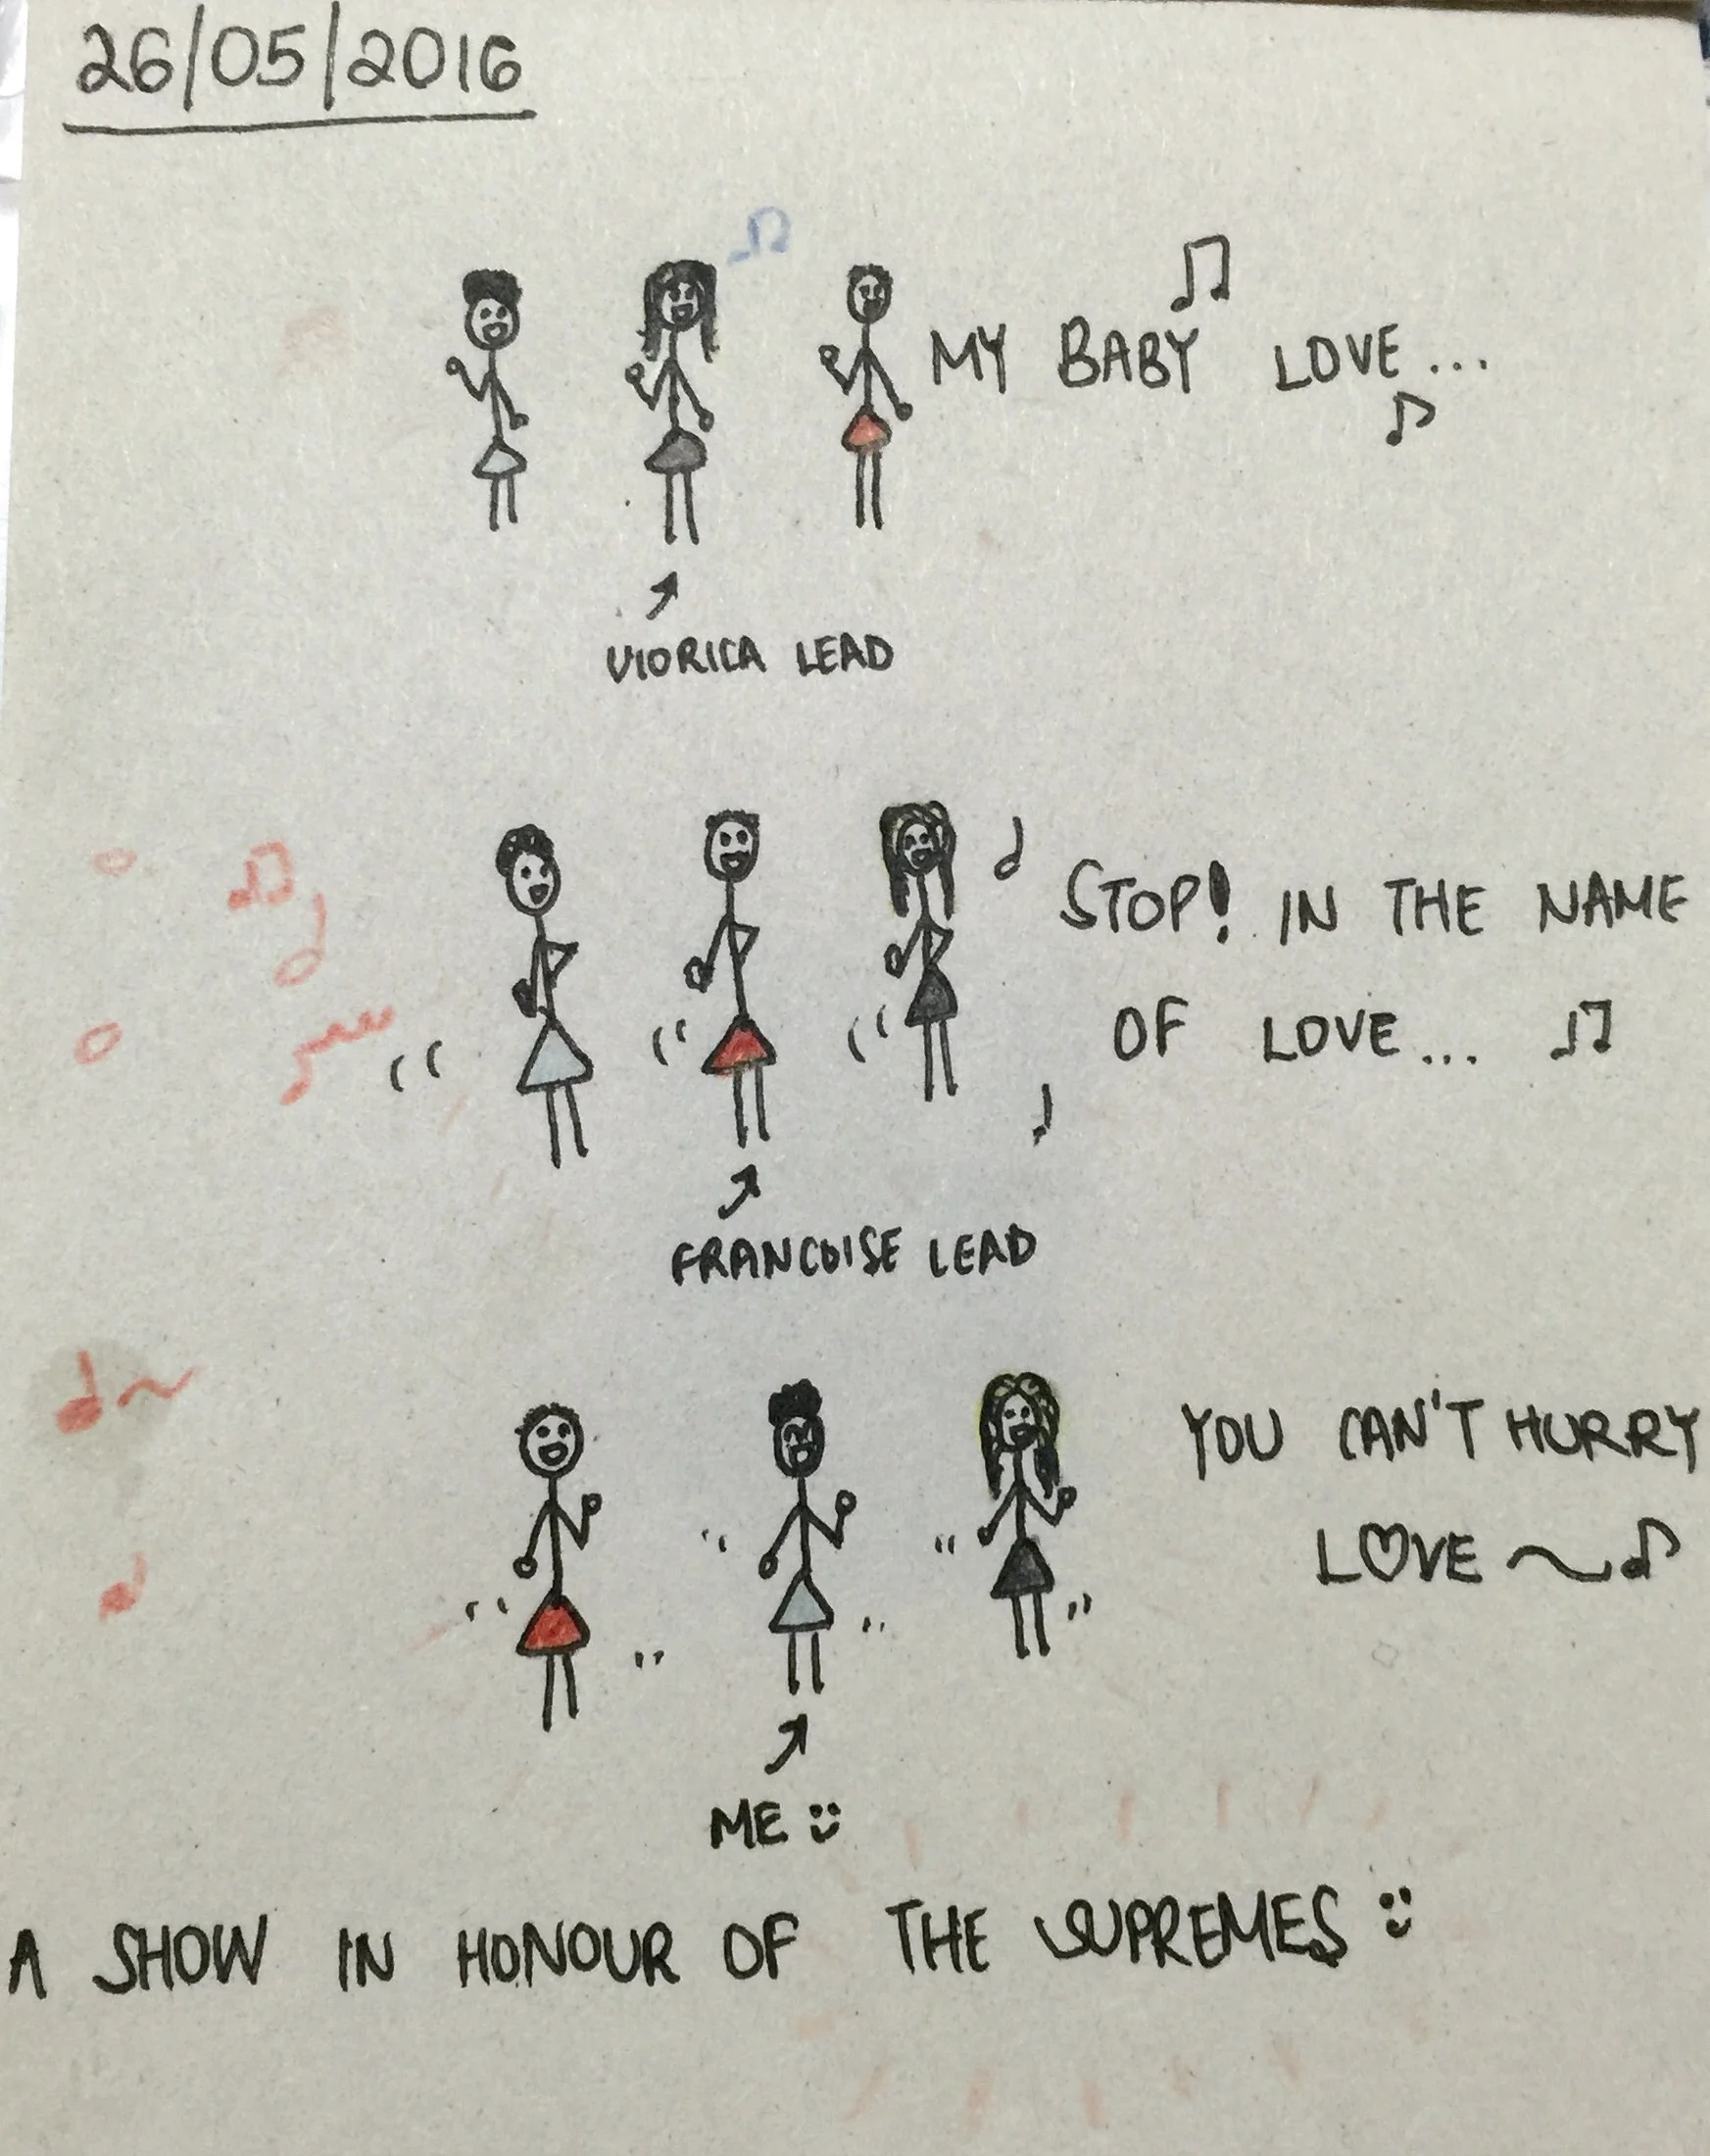 26/05/2016
MY BABY LOVE...
VIORICA LEAD
STOP! IN THE NAME
OF LOVE...
FRANCOISE LEAD
YOU CAN'T HURRY
LOVE
ME
A SHOW IN HONOUR OF THE SUPREMES